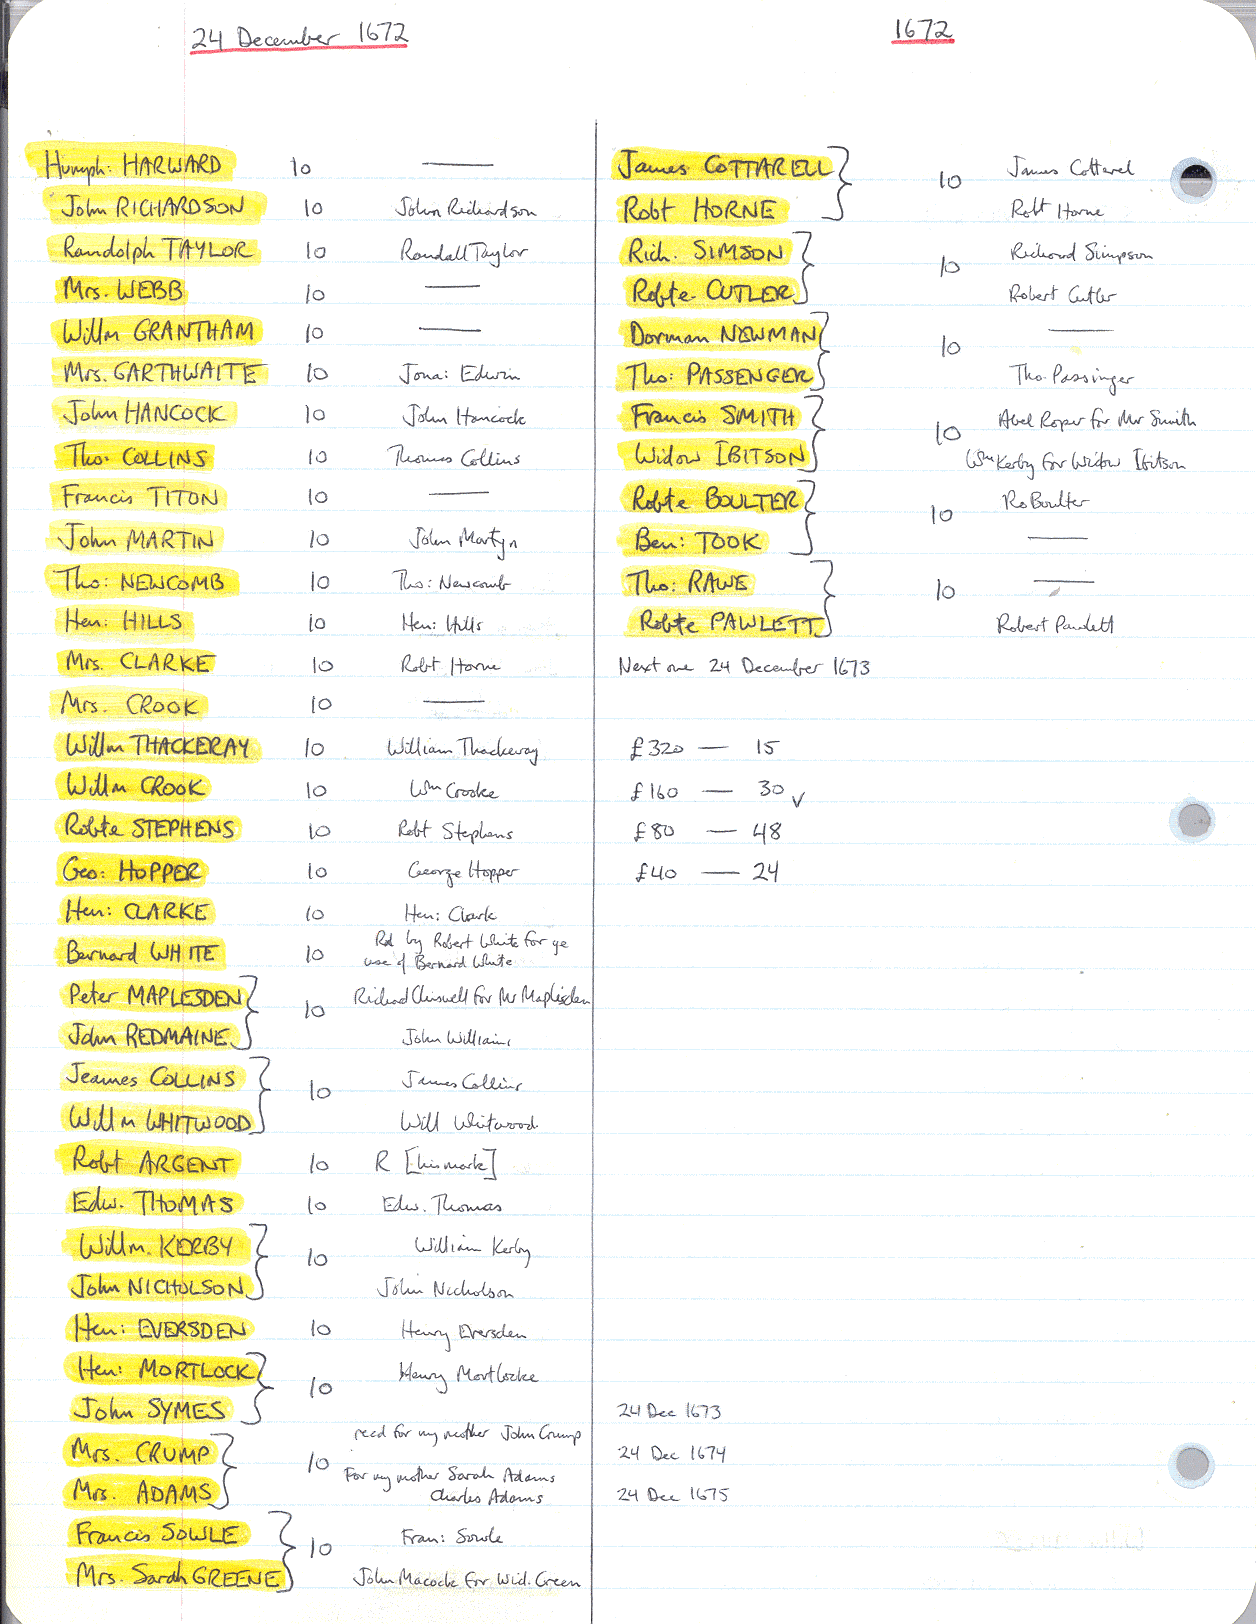 24 December 1672
Humph: HARWARD 10 ——
John RICHARDSON 10 John Richardson
Randolph TAYLOR 10 Randall Taylor
Mrs. WEBB 10 ——
Willm GRANTHAM 10 ——
Mrs. GARTHWAITE 10 Jona: Edwin
John HANCOCK 10 John Hancock
Tho: COLLINS 10 Thomas Collins
Francis TITON 10 ——
John MARTIN 10 John Martyn
Tho: NEWCOMB 10 Tho: Newcomb
Hen: HILLS 10 Hen: Hills
Mrs. CLARKE 10 Robt Horne
Mrs. CROOK 10 ——
Willm THACKERAY 10 William Thackeray
Willm CROOK 10 Wm Crooke
Robte STEPHENS 10 Robt Stephens
Geo: HOPPER 10 George Hopper
Hen: CLARKE 10 Hen: Clark
Bernard WHITE 10 Rd by Robert White for ye
use of Bernard White
Peter MAPLESDEN } 10 Richard Chiswell for Mr Maplisden
John REDMAINE } John Williams
Jeames COLLINS } 10 James Collins
Willm WHITWOOD } Will Whitwood
Robt ARGENT 10 R [his mark]
Edw. THOMAS 10 Edw. Thomas
Willm. KERBY } 10 William Kerby
John NICHOLSON } John Nicholson
Hen: EVERSDEN 10 Henry Eversden
Hen: MORTLOCK } 10 Henry Mortlocke
John SYMES }
recd for my mother John Crump
Mrs. CRUMP } 10
For my mother Sarah Adams
Mrs. ADAMS } Charles Adams
Francis SOWLE } 10 Fran: Sowle
Mrs. Sarah GREENE } John Macock for Wid. Green
1672
James COTTARELL } 10 James Cottarel
Robt HORNE } Robt Horne
Rich. SIMSON } 10 Richard Simpson
Robte CUTLER } Robert Cutler
Dorman NEWMAN } 10 ——
Tho: PASSENGER } Tho. Passinger
Francis SMITH } 10 Abel Roper for Mr Smith
Widow IBITSON } Wm Kerby for Widow Ibitson
Robte BOULTER } 10 Ro Boulter
Ben: TOOK } ——
Tho: RAWE } 10 ——
Robte PAWLETT } Robert Pawlett
Next one 24 December 1673
£320 — 15
£160 — 30 v
£80 — 48
£40 — 24
24 Dec 1673
24 Dec 1674
24 Dec 1675